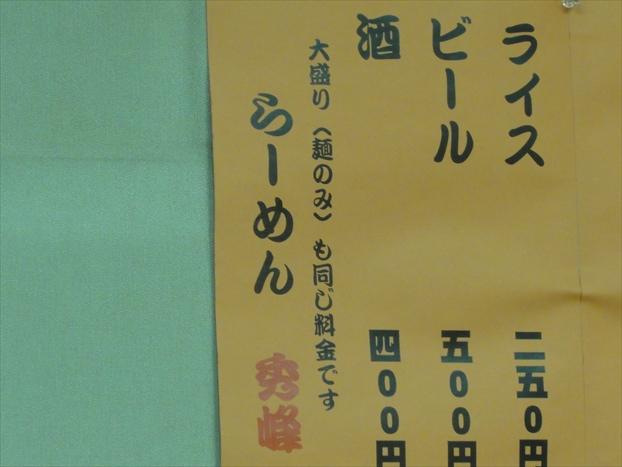 ライス 二五0円
ビール 五00円
酒 四00円
大盛り(麺のみ)も同じ料金です
らーめん 秀峰